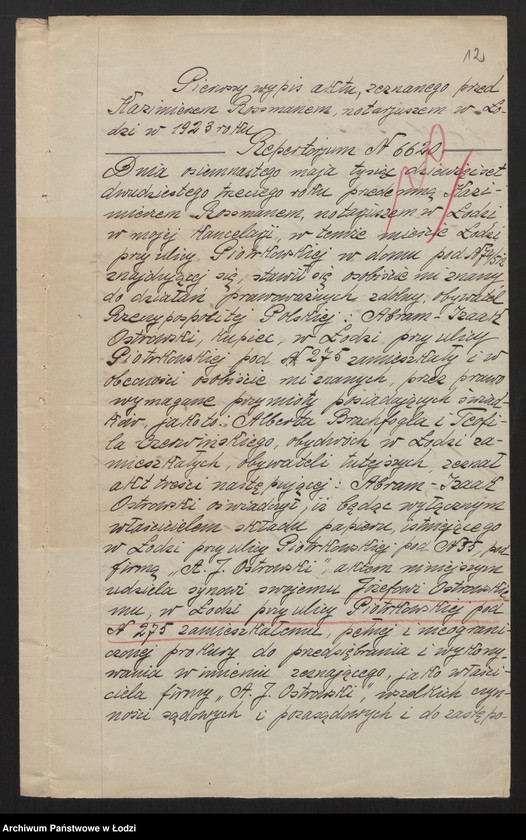 12
Pierwszy wypis aktu, zeznanego przed
Kazimierzem Rossmanem, notarjuszem w Ło-
dzi w 1923 roku
Repertorjum № 6620
Dnia osiemnastego maja tysiąc dziewięćset
dwudziestego trzeciego roku przedemną Kazi-
mierzem Rossmanem, notarjuszem w Łodzi
w mojej kancelarji, w temże mieście Łodzi
przy ulicy Piotrkowskiej w domu pod №
znajdującej się, stawił się osobiście mi znany
do działań prawoważnych zdolny, obywatel
Rzeczypospolitej Polskiej: Abram-Izaak
Ostrowski, kupiec, w Łodzi, przy ulicy
Piotrkowskiej pod № 275 zamieszkały i w
obecności osobiście mi znanych, przez prawo
wymagane przymioty posiadających świad-
ków, jako to: Alberta i Teofi-
la Czerwińskiego, obydwóch w Łodzi za-
mieszkałych, obywateli tutejszych, zeznał
akt treści następującej: Abram-Izaak
Ostrowski oświadczył, iż będąc wyłącznym
właścicielem składu papieru, istniejącego
w Łodzi przy ulicy Piotrkowskiej pod № 55, pod
firmą „A. J. Ostrowski", aktem niniejszym
udziela synowi swojemu Józefowi Ostrowskie-
mu, w Łodzi przy ulicy Piotrkowskiej pod
№ 275 zamieszkałemu, pełnej i nieograni-
czonej prokury do przedsiębrania i wykony-
wania w imieniu zeznającego, jako właści-
ciela firmy „A. J. Ostrowski" wszelkich czyn-
ności sądowych i pozasądowych i do zastępo-
Archiwum Państwowe w Łodzi